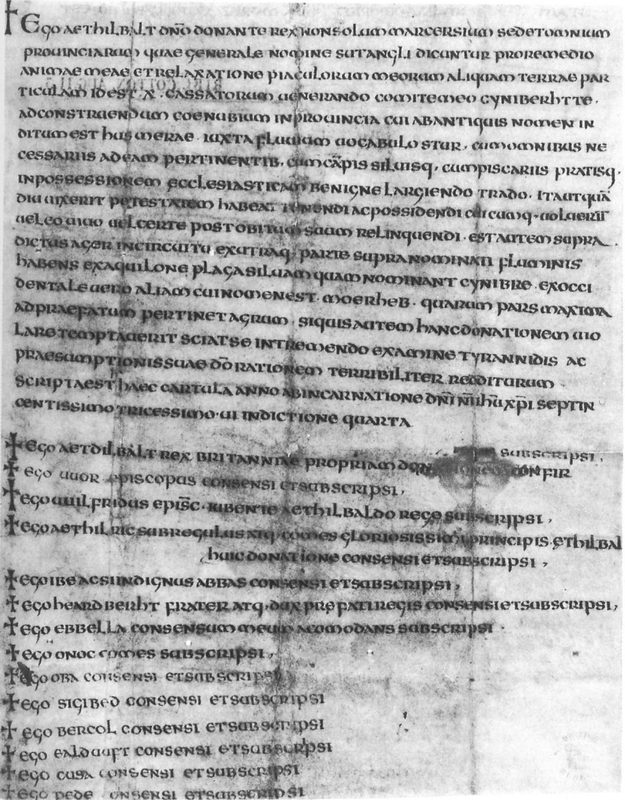 † Ego aethilbalt dn̄o donante rex non solum marcersium sed et omnium
prouinciarum quae generale nomine sutangli dicuntur pro remedio
animae meae et relaxatione piaculorum meorum aliquam terrae par
ticulam id est · x · cassatorum uenerando comite meo cyniberhtte ·
ad construendum coenubium in prouincia cui ab antiquis nomen in
ditum est husmerae · iuxta fluuium uocabulo stur · cum omnibus ne
cessariis ad eam pertinentib · cum cāpis siluisq · cum piscariis pratisq ·
in possessionem ecclesiasticam benigne largiendo trado · ita ut quā
diu uixerit potestatem habeat tenendi ac possidendi cuicumq · uoluerit
uel eo uiuo uel certe post obitum suum relinquendi · est autem supra
dictus ager in circuitu ex utraq · parte supranominati fluminis
habens ex aquilone plaga siluam quam nominant cynibre · ex occi
dentale uero aliam cui nomen est moerheb · quarum pars maxima
ad praefatum pertinet agrum · siquis autem hanc donationem uio
lare temptauerit sciat se in tremendo examine tyrannidis ac
praesumptionis suae dō rationem terribiliter redditurum ·
scripta est haec cartula anno ab incarnatione dn̄i n̄i ihū xp̄i septin
centissimo tricessimo · ui indictione quarta
† ego aetdilbalt rex britanniae propriam subscripsi ,
† ego uuor episcopus consensi et subscripsi ,
† ego uuilfridus epis̄c · iubente aethilbaldo rege subscripsi ,
† ego aethilric subregulus atq · comes gloriosissimi principis ethilbal
huic donatione consensi et subscripsi ,
† ego ibe acsi indignus abbas consensi et subscripsi ,
† ego heardberht frater atq · dux prefati regis consensi et subscripsi ,
† ego ebbella consensum meum acomodans subscripsi ·
† ego onoc comes subscripsi ,
† ego oba consensi et subscripsi
† ego sigibed consensi et subscripsi
† ego bercol consensi et subscripsi
† ego ealduuft consensi et subscripsi
† ego cusa consensi et subscripsi
† ego pede consensi et subscripsi